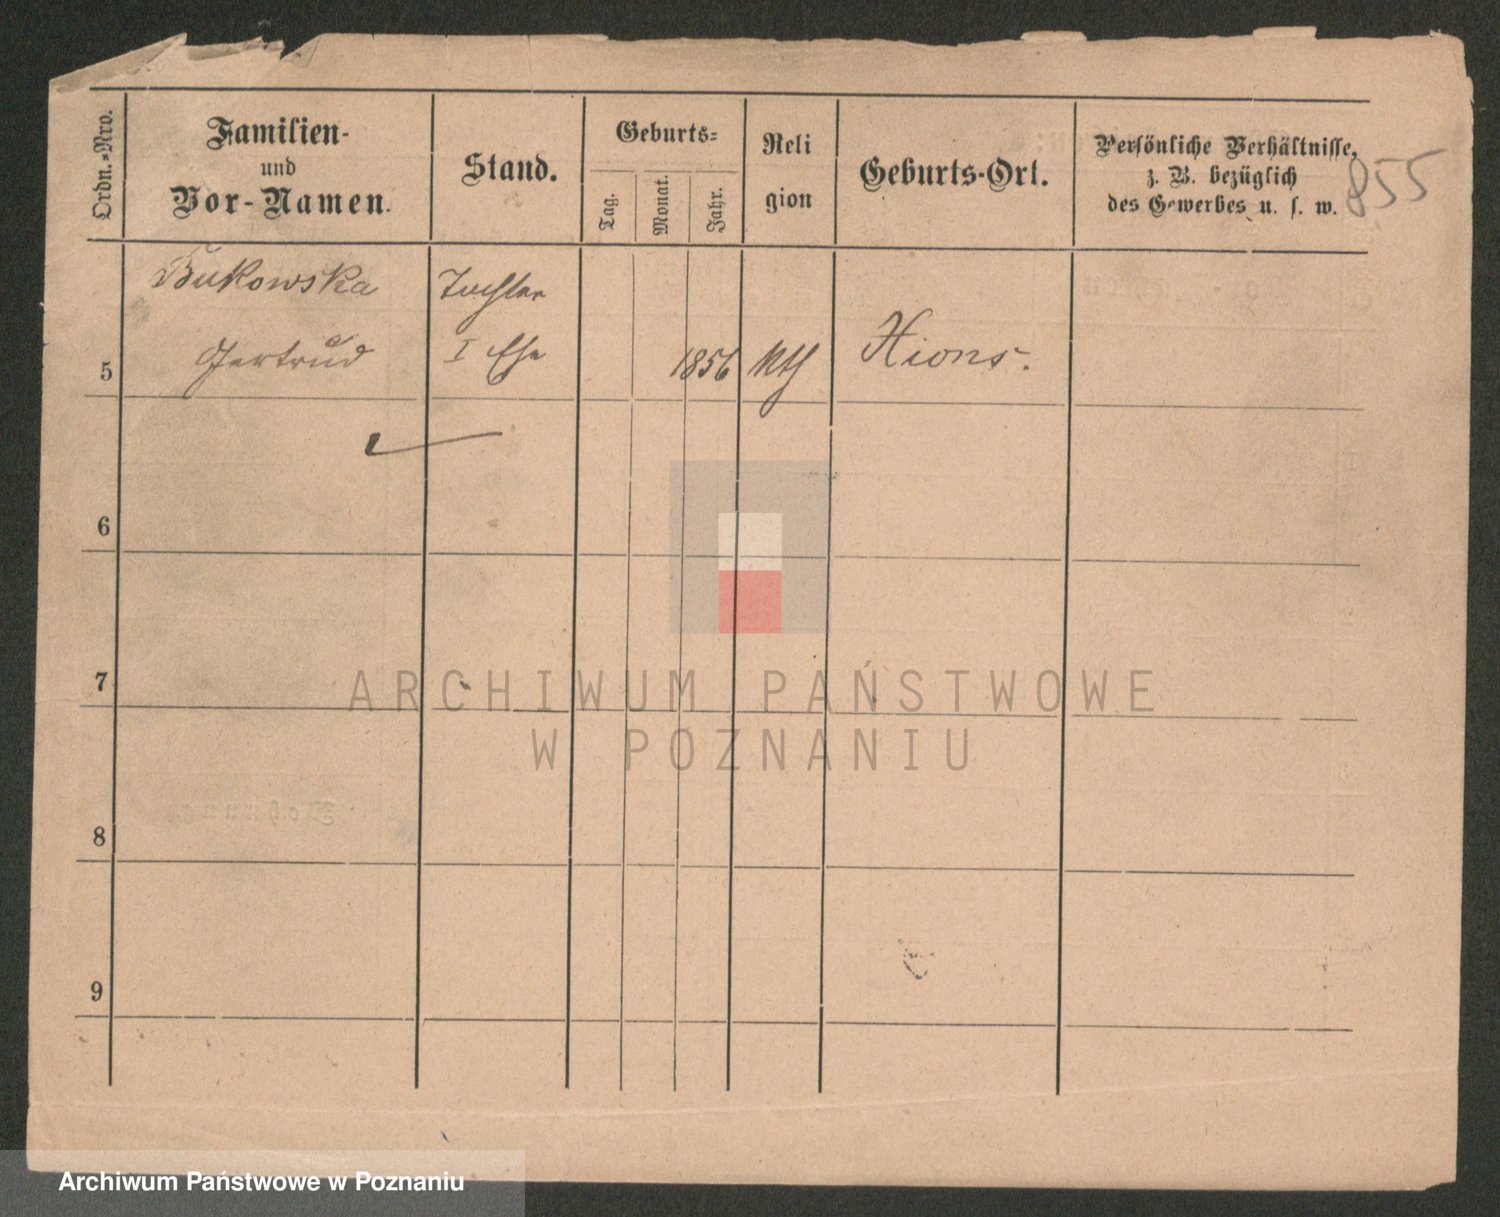 Ordn.-Nro.
Familien-
und
Vor-Namen.
Stand.
Geburts-
Tag.
Monat.
Jahr.
Reli
gion
Geburts-Ort.
Persönliche Verhältnisse,
z. B. bezüglich
des Gewerbes u. s. w.
855
Bukowska
Tochter
5
Gertrud
I Ehe
1856
kth
Xions.
6
7
8
9
ARCHIWUM PAŃSTWOWE
W POZNANIU
Archiwum Państwowe w Poznaniu